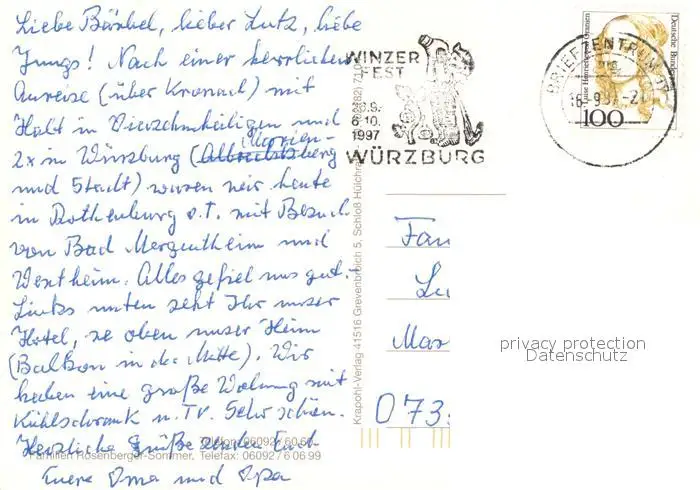 Liebe Bärbel, lieber Lutz, liebe
Jungs! Nach einer herrlichen
Anreise (über Kronach) mit
Halt in Vierzehnheiligen und
Marien-
2x in Würzburg (Albrechtsberg
und Stadt) waren wir heute
in Rothenburg o.T. mit Besuch
von Bad Mergentheim und
Wertheim. Alles gefiel uns gut.
Links unten seht Ihr unser
Hotel, re oben unser Heim
(Balkon in der Mitte). Wir
haben eine große Wohnung mit
Kühlschrank u. TV. Sehr schön.
Herzliche Grüße senden Euch
Eure Oma und Opa
Telefon: 06092/60 66
Familien Rosenberger-Sommer, Telefax: 06092/6 06 99
Krapohl-Verlag 41516 Grevenbroich 5, Schloß Hülchrath
WINZER
FEST
26.9.
6.10.
1997
WÜRZBURG
BRIEFZENTRUM 97
16.-9.97.-21
Deutsche Bundespost
100
Fam
Lu
Max
073
privacy protection
Datenschutz